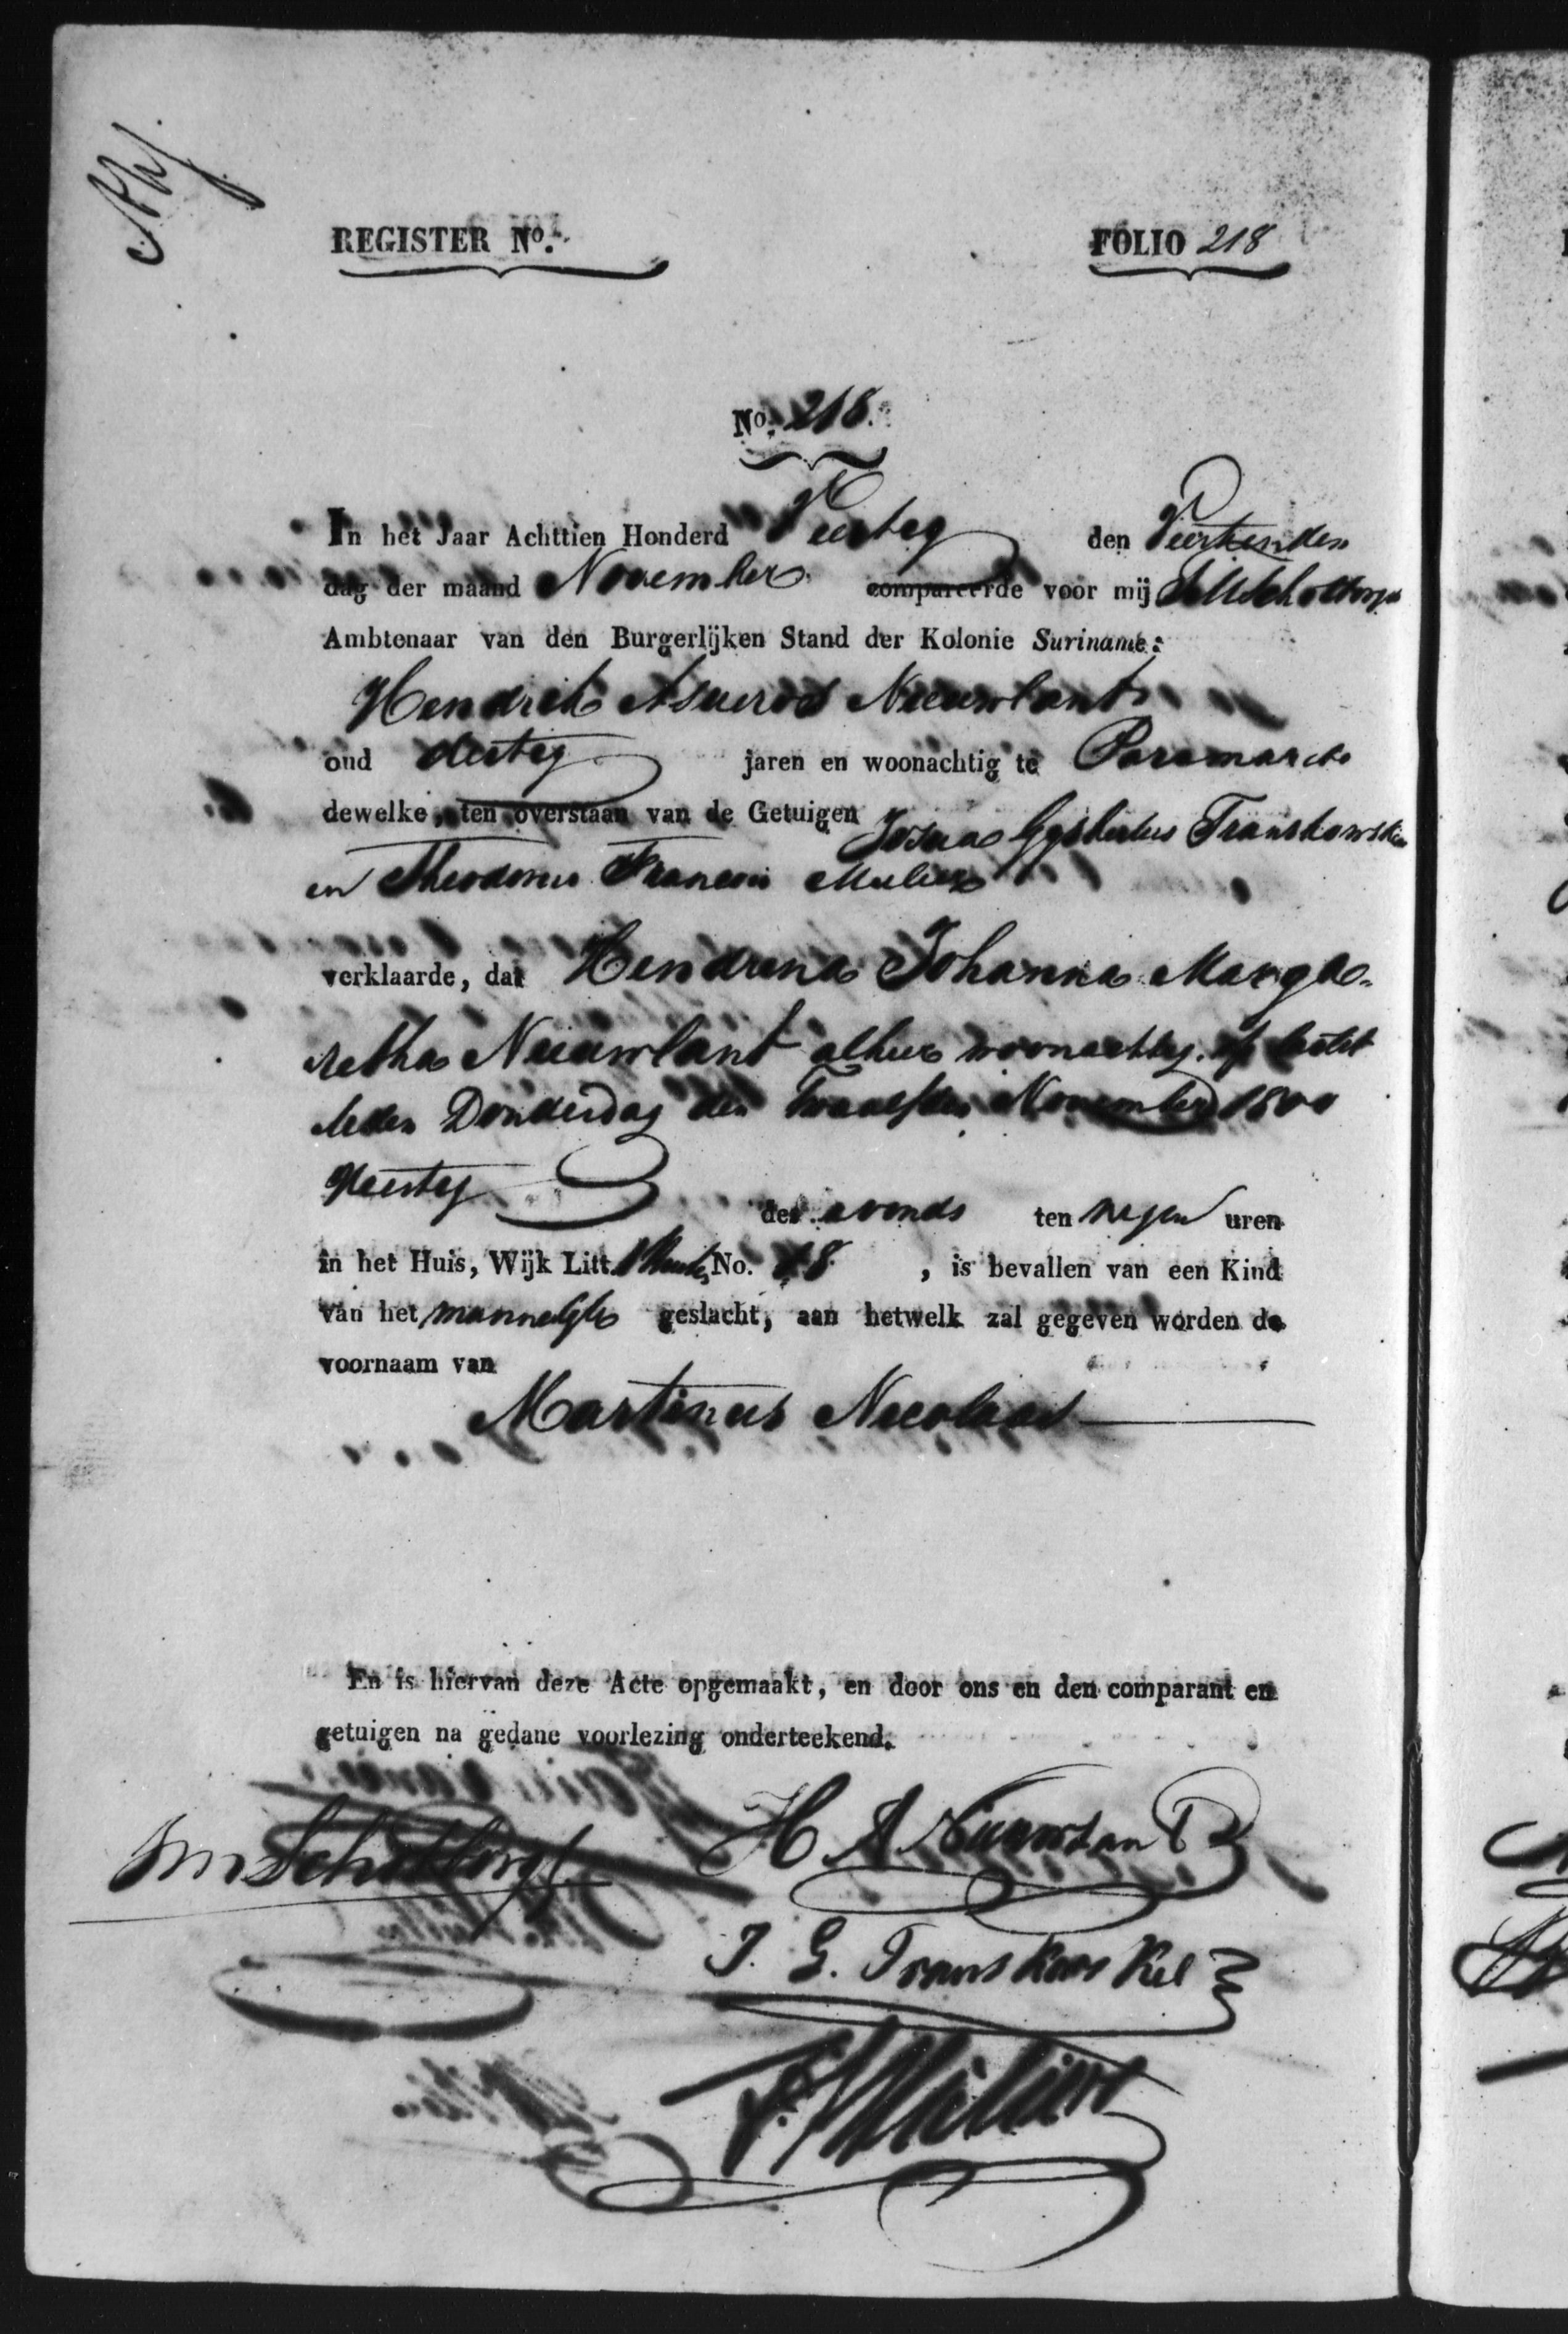 REGISTER No.
FOLIO 218
No. 218.
In het Jaar Achttien Honderd Veertig den Veertienden
dag der maand November compareerde voor mij
Ambtenaar van den Burgerlijken Stand der Kolonie Suriname:
Hendrik Asueros Nieuwlant
oud dertig jaren en woonachtig te Paramaribo
dewelke, ten overstaan van de Getuigen Josua Gysbertus
en Theodorus Francois
verklaarde, dat Hendrina Johanna Marga-
retha Nieuwlant alhier woonachtig op laatst
leden Donderdag den twaalfden November 1800
Veertig des avonds ten negen uren
in het Huis, Wijk Litt. No. 48, is bevallen van een Kind
van het mannelijk geslacht, aan hetwelk zal gegeven worden de
voornaam van
Martinus Nicolaas
En is hiervan deze Acte opgemaakt, en door ons en den comparant en
getuigen na gedane voorlezing onderteekend.
H A Nieuwlant
J. G.